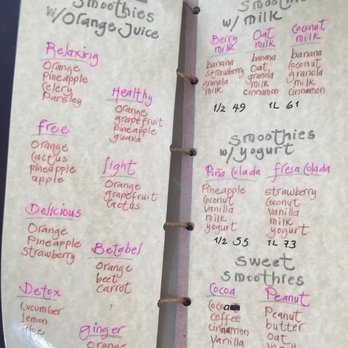 Smoothies
w/Orange Juice
Relaxing
Orange
Pineapple
Celery
Parsley
Healthy
Orange
grapefruit
Pineapple
guava
free
Orange
cactus
pineapple
apple
light
Orange
grapefruit
cactus
Delicious
Orange
Pineapple
strawberry
Betabel
Orange
beet
carrot
Detox
cucumber
lemon
ginger
Orange
Smoothies
w/ milk
Berry
milk
banana
strawberry
granola
milk
Oat
milk
banana
oat
granola
milk
cinnamon
Coconut
milk
banana
coconut
granola
milk
cinnamon
1/2 49 1L 61
Smoothies
w/ yogurt
Piña Colada
Pineapple
coconut
vanilla
milk
yogurt
fresa Colada
strawberry
coconut
vanilla
milk
yogurt
1/2 55 1L 73
Sweet
Smoothies
Cocoa
cocoa
coffee
cinnamon
Vanilla
Peanut
Peanut
butter
oat